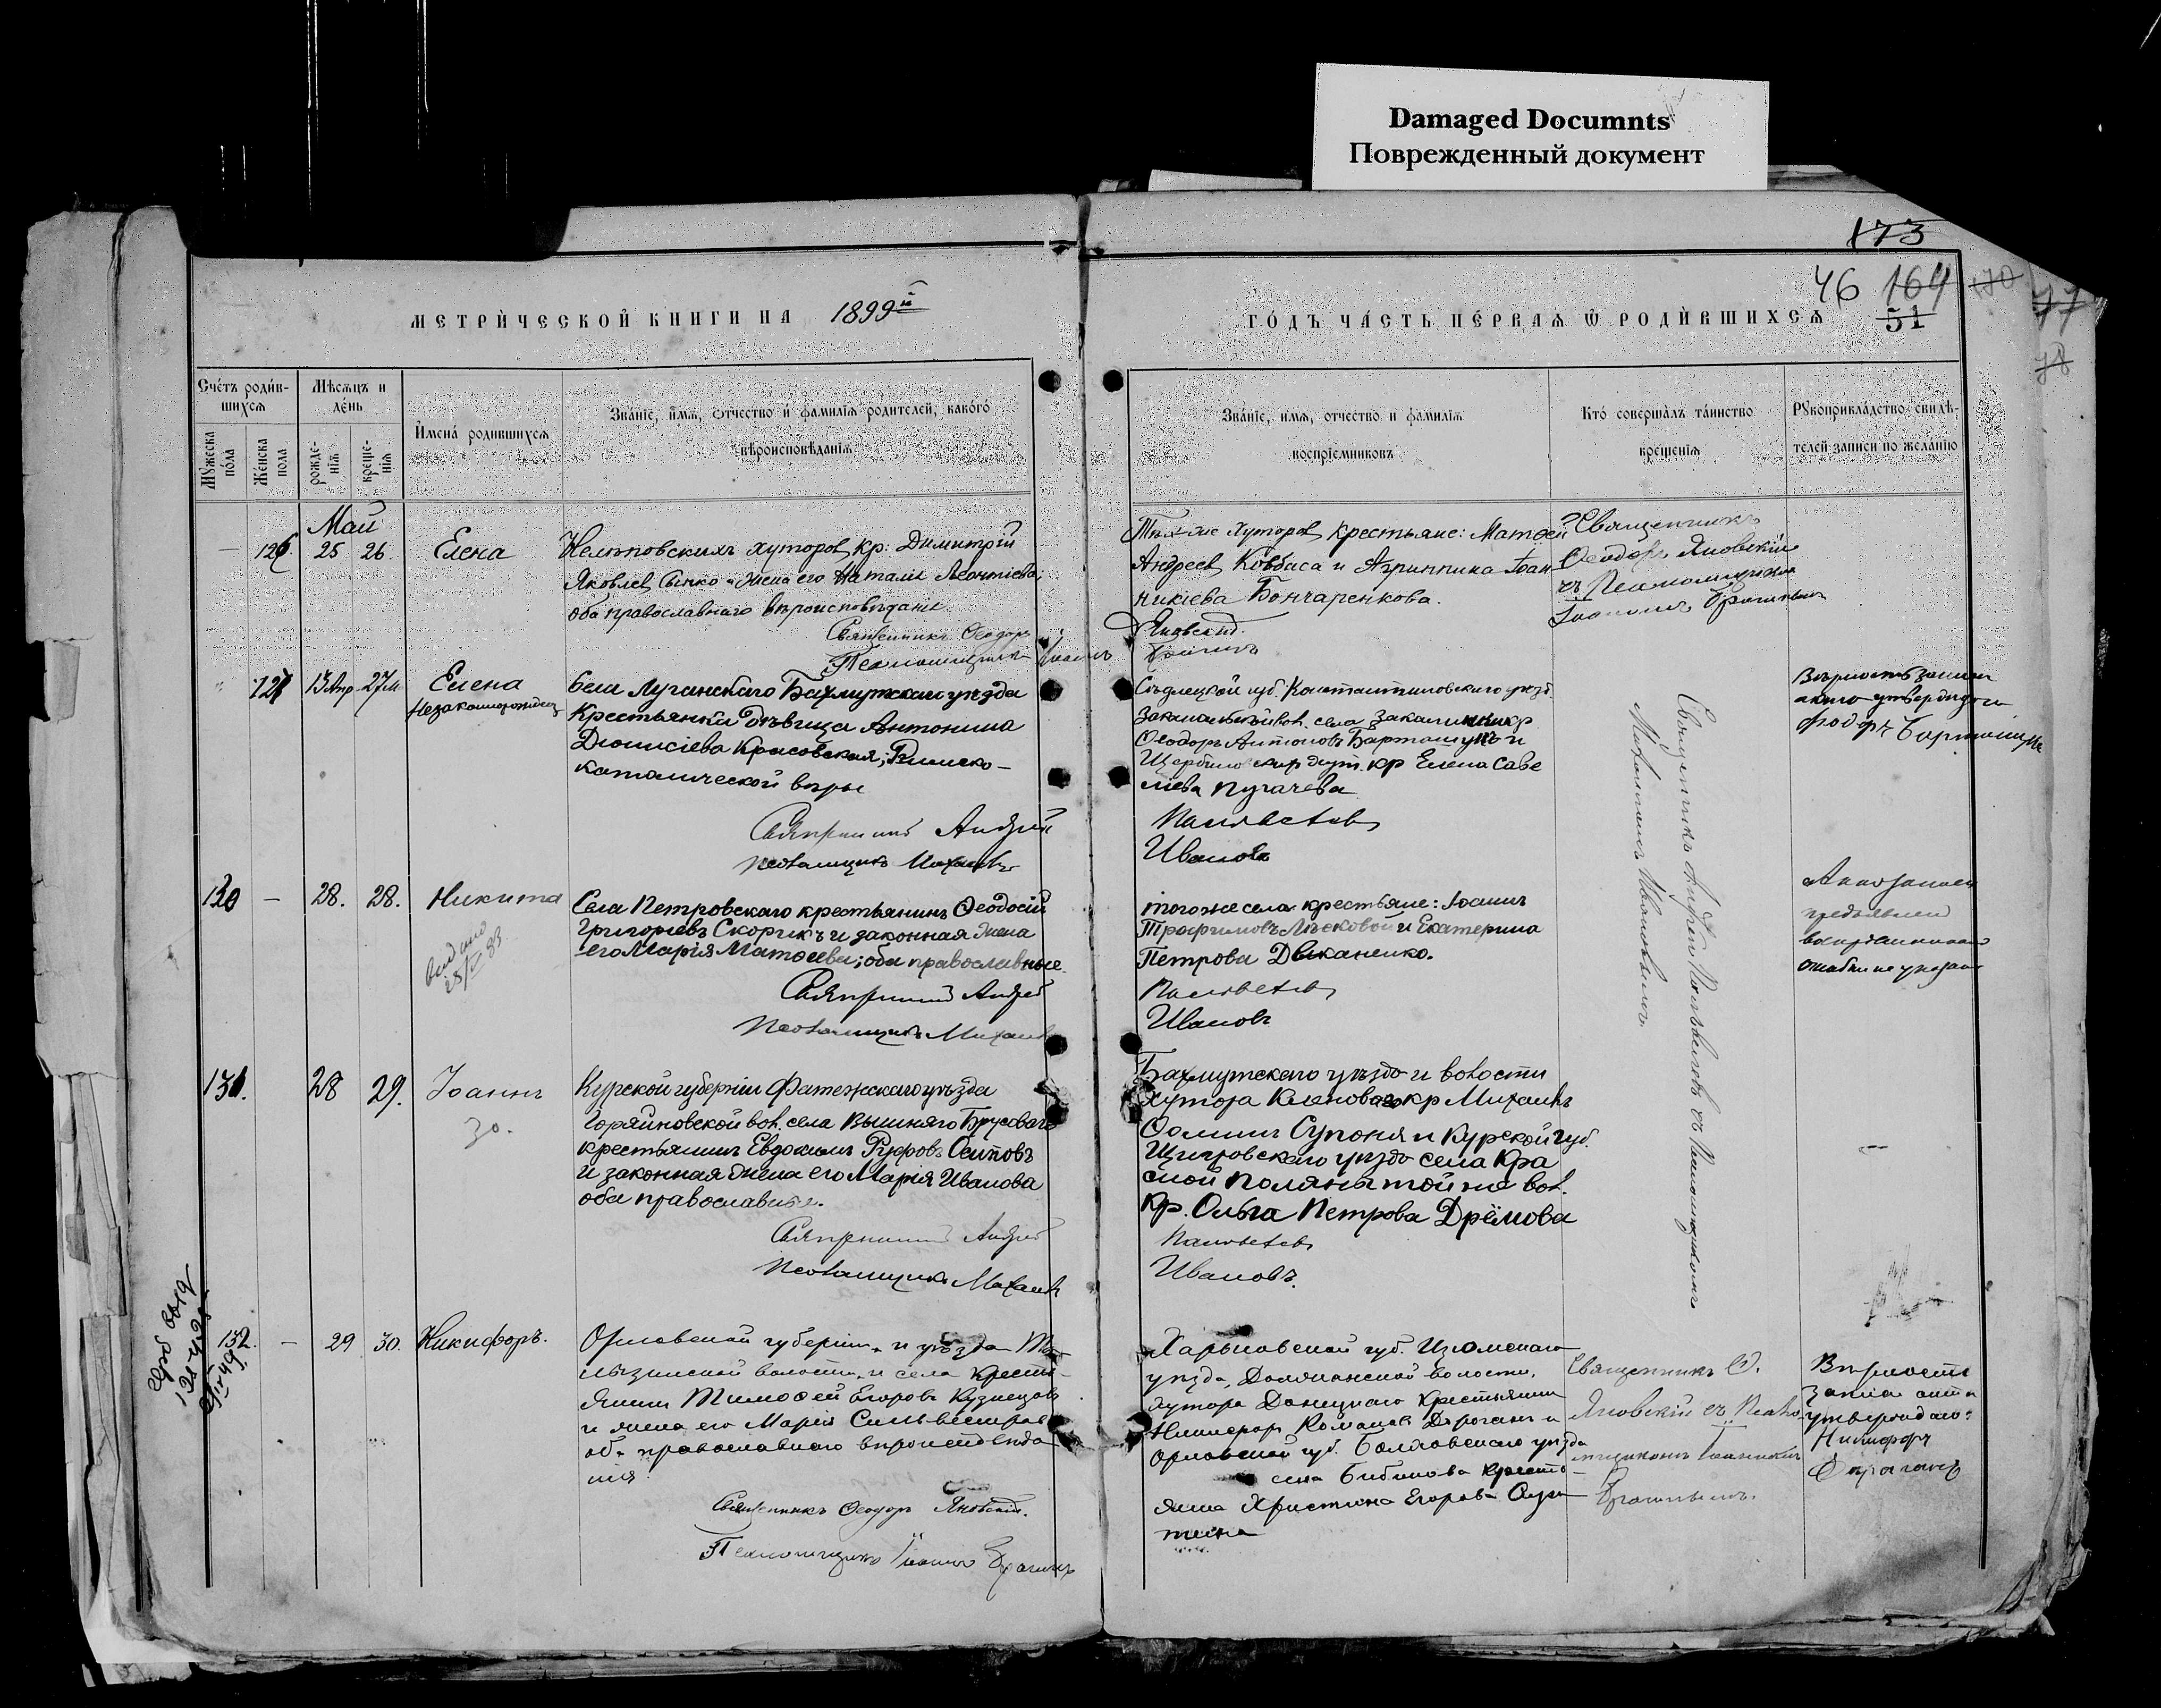 Damaged Documnts
Поврежденный документ
173
46 164 170 77
51
78
МЕТРИ́ЧЕСКОЙ КНИГИ НА 1899й
ГО́ДЪ ЧА́СТЬ ПЕ́РВАѦ Ѡ҆ РОДИ́ВШИХСѦ
Сче́тъ роди́в-
шихсѧ
Мѣ́сѧцъ и
де́нь
И҆мена́ роди́вшихсѧ
Зва́нїе, и҆́мѧ, ѻ҆́тчество и҆ фами́лїѧ роди́телей, како́гѡ
вѣроисповѣ́данїѧ.
Мꙋ́жеска по́ла
Же́нска пола
рожде-нїѧ
креще-нїѧ
Зва́нїе, имѧ, отчество и фамилїѧ
воспрїемниковъ
Кто́ соверша́лъ та́инство
крещенїѧ
Рꙋкоприкла́дство свидѣ́-
телей записи по жела́нїю
Май
— 126. 25 26. Елена
Нелѣповскихъ хуторов, кр: Димитрій
Яковлев, Сынко и жена его Наталія Леонтіева;
оба православнаго вѣроисповѣданія.
Священникъ Ѳеодоръ
Псаломщикъ Іоаннъ
Тѣхъ же хуторов, крестьяне: Матѳей
Андреев, Ковбаса и Агриппина Іоан
никіева Бончаренкова.
Яновскій.
Брагинъ
Священникъ
Ѳеодоръ Яновскій
съ Псаломщикомъ
Іоанномъ Брагинымъ
127 13 Апр 27 М Елена
Незаконнорожден
Села Луганскаго Бахмутскаго уѣзда
Крестьянка дѣвица Антонина
Діонисіева Красовская; Римско-
католической вѣры
Священникъ Андрей
Псаломщикъ Михаилъ
Сѣдлецкой губ. Константиновскаго уѣзд.
села кр
Ѳеодоръ Антоновъ Бартошукъ и
хут. кр Елена Саве
ліева Пугачева
Ивановъ
Вѣрность записи
акта утверждаю
Федоръ Бартошукъ
Священникъ Андрей съ Псаломщикомъ
Михаиломъ Ивановымъ.
130 — 28. 28. Никита
Села Петровскаго крестьянинъ Ѳеодосій
Григорьевъ Скорикъ и законная жена
его Марія Матѳеева; оба православные.
Священникъ Андрей
Псаломщикъ Михаилъ
того же села крестьяне: Іоаннъ
Трофимовъ Лѣсковой и Екатерина
Петрова Дыканенко.
Ивановъ
ошибки не указали
131. 28 29. Іоаннъ
30.
Курской губерніи Фатежскаго уѣзда
Горяйновской вол. села Вышняго Брусоваго
крестьянинъ Евдокимъ Руфовъ Осиповъ
и законная жена его Марія Иванова
оба православные.
Священникъ Андрей
Псаломщикъ Михаилъ
Бахмутскаго уѣзда и волости
хутора Кленоваго кр Михаилъ
Ѳоминъ Супоня и Курской губ.
Щигровскаго уѣзда села Кра
сной Поляны той же вол.
кр. Ольга Петрова Дрёмова
Ивановъ.
—
132. — 29 30. Никифоръ.
Орловской губерніи и уѣзда
волости и села кресть-
янинъ Тимоѳей Егоровъ Кузнецовъ
и жена его Марія Сильвестрова
оба православнаго вѣроисповѣда
нія.
Священникъ Ѳеодоръ Яновскій.
Псаломщикъ Іоаннъ Брагинъ
Харьковской губ. Изюмскаго
уѣзда, волости,
хутора Донецкаго крестьянинъ
Никифоръ Романовъ Дороганъ и
Орловской губ. Болховскаго уѣзда
села Бибикова кресть-
янка Христина Егорова
Священникъ Ѳ.
Яновскій съ Псало-
мщикомъ Іоанномъ
Брагинымъ.
Вѣрность
записи акта
утверждаю:
Никифоръ